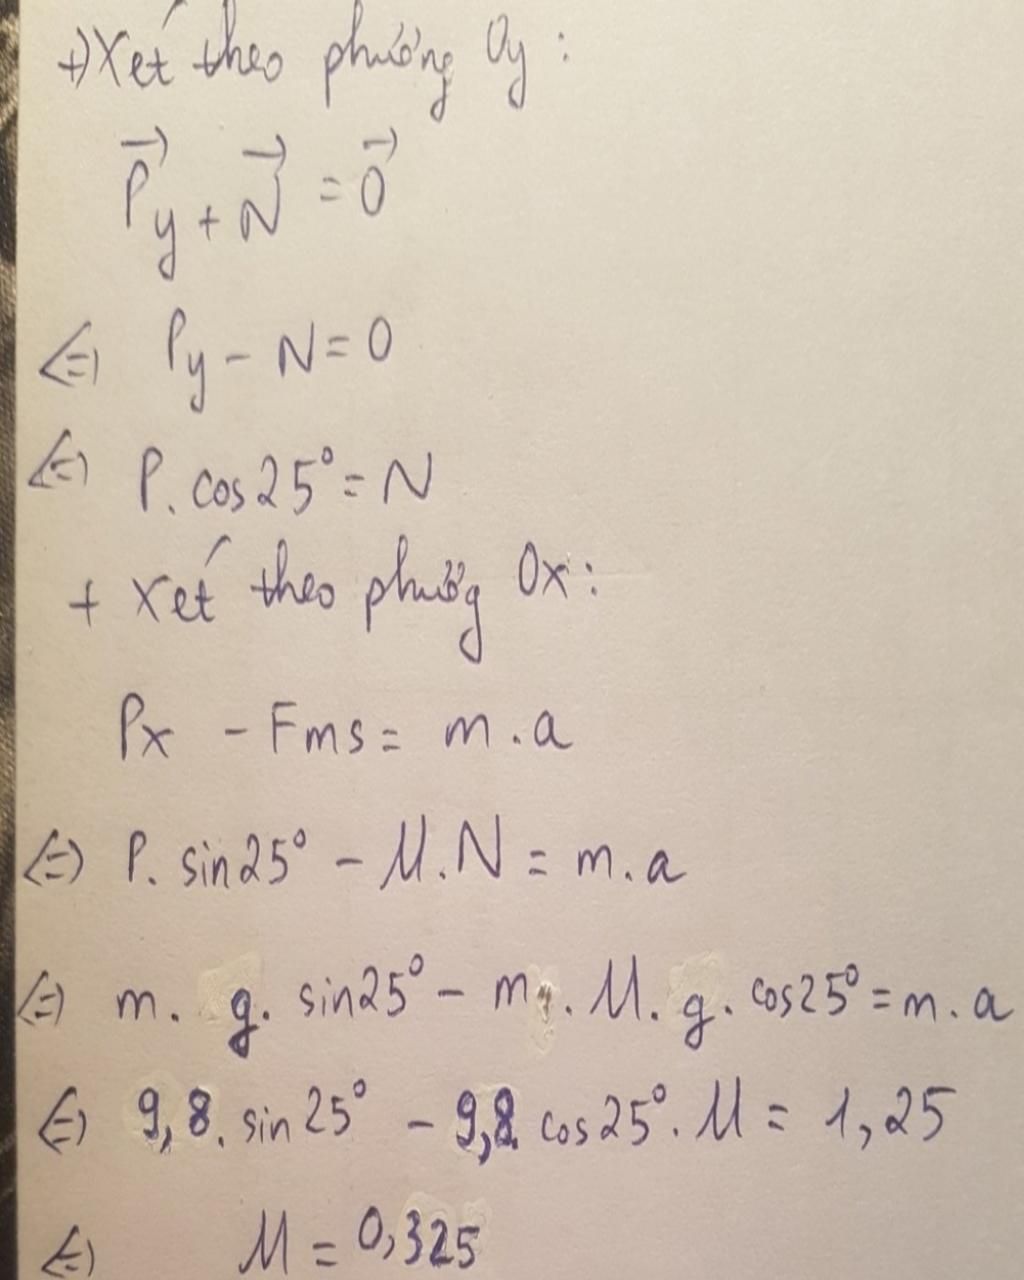 +) Xét theo phương Oy :
P⃗y + N⃗ = 0⃗
<=> Py - N = 0
<=> P. cos 25° = N
+ Xét theo phương Ox :
Px - Fms = m . a
<=> P. sin 25° - M . N = m . a
<=> m . g . sin 25° - m . M . g . cos 25° = m . a
<=> 9,8 . sin 25° - 9,8 cos 25° . M = 1,25
<=> M = 0,325